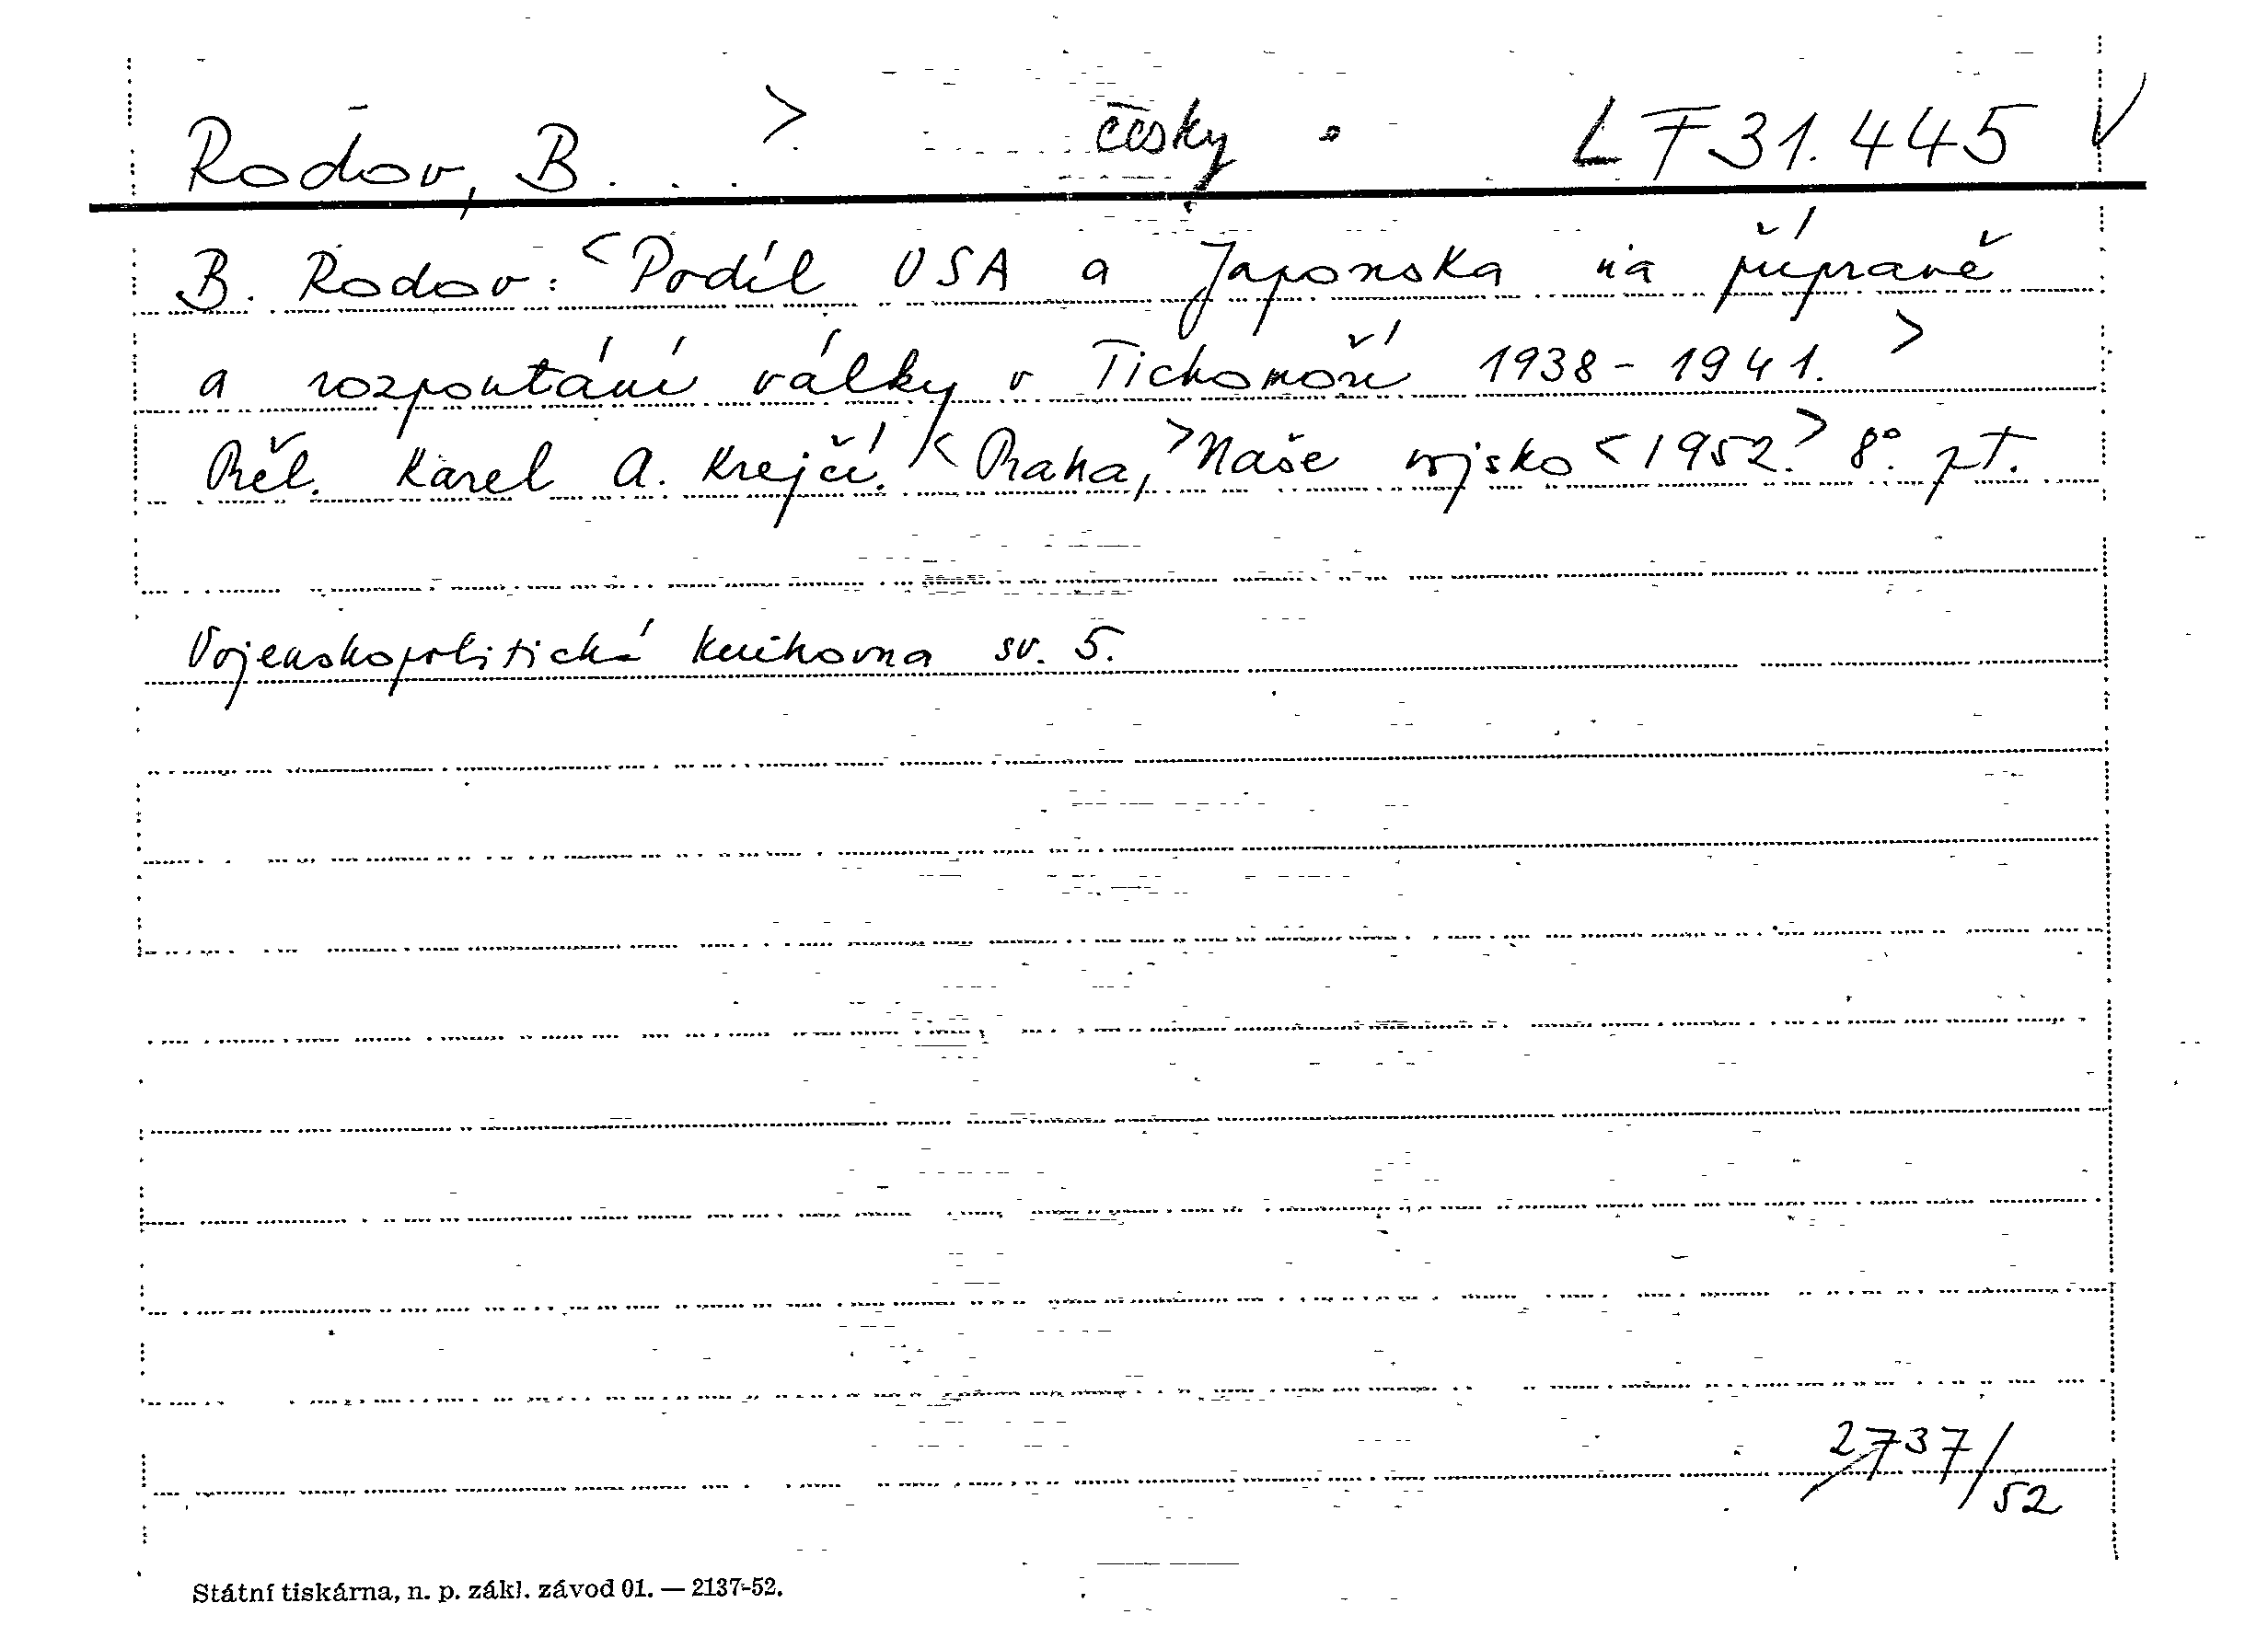 Rodov, B. . . > česky LF31.445 V
B. Rodov: <Podíl USA a Japonska na přípravě
a rozpoutání války v Tichomoří 1938-1941.>
Přel. Karel A. Krejčí. <Praha,> Naše vojsko <1952.> 8°. pT.
Vojenskopolitická knihovna sv. 5.
2737/52
Státní tiskárna, n. p. zákl. závod 01. — 2137-52.